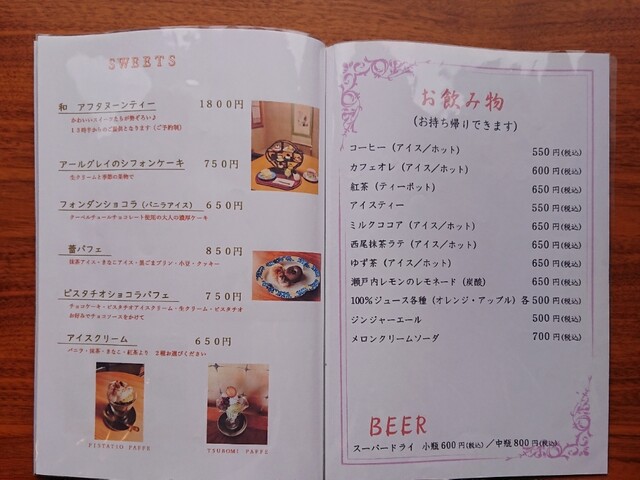 SWEETS
和 アフタヌーンティー 1800円
かわいいスイーツたちが勢ぞろい♪
13時半からのご提供となります(ご予約制)
アールグレイのシフォンケーキ 750円
生クリームと季節の果物で
フォンダンショコラ(バニラアイス) 650円
クーベルチュールチョコレート使用の大人の濃厚ケーキ
蕾パフェ 850円
抹茶アイス・きなこアイス・黒ごまプリン・小豆・クッキー
ピスタチオショコラパフェ 750円
チョコケーキ・ピスタチオアイスクリーム・生クリーム・ピスタチオ
お好みでチョコソースをかけて
アイスクリーム 650円
バニラ・抹茶・きなこ・紅茶より 2種お選びください
PISTATIO PAFFE
TSUBOMI PAFFE
お飲み物
(お持ち帰りできます)
コーヒー(アイス/ホット) 550円(税込)
カフェオレ(アイス/ホット) 600円(税込)
紅茶(ティーポット) 650円(税込)
アイスティー 550円(税込)
ミルクココア(アイス/ホット) 650円(税込)
西尾抹茶ラテ(アイス/ホット) 650円(税込)
ゆず茶(アイス/ホット) 650円(税込)
瀬戸内レモンのレモネード(炭酸) 650円(税込)
100%ジュース各種(オレンジ・アップル)各500円(税込)
ジンジャーエール 500円(税込)
メロンクリームソーダ 700円(税込)
BEER
スーパードライ 小瓶600円(税込)/中瓶800円(税込)